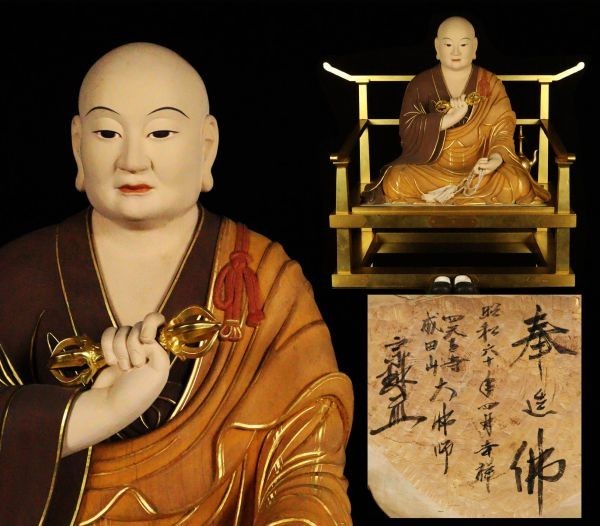 奉造佛
昭和六十年四月吉祥
四天王寺
成田山大佛師